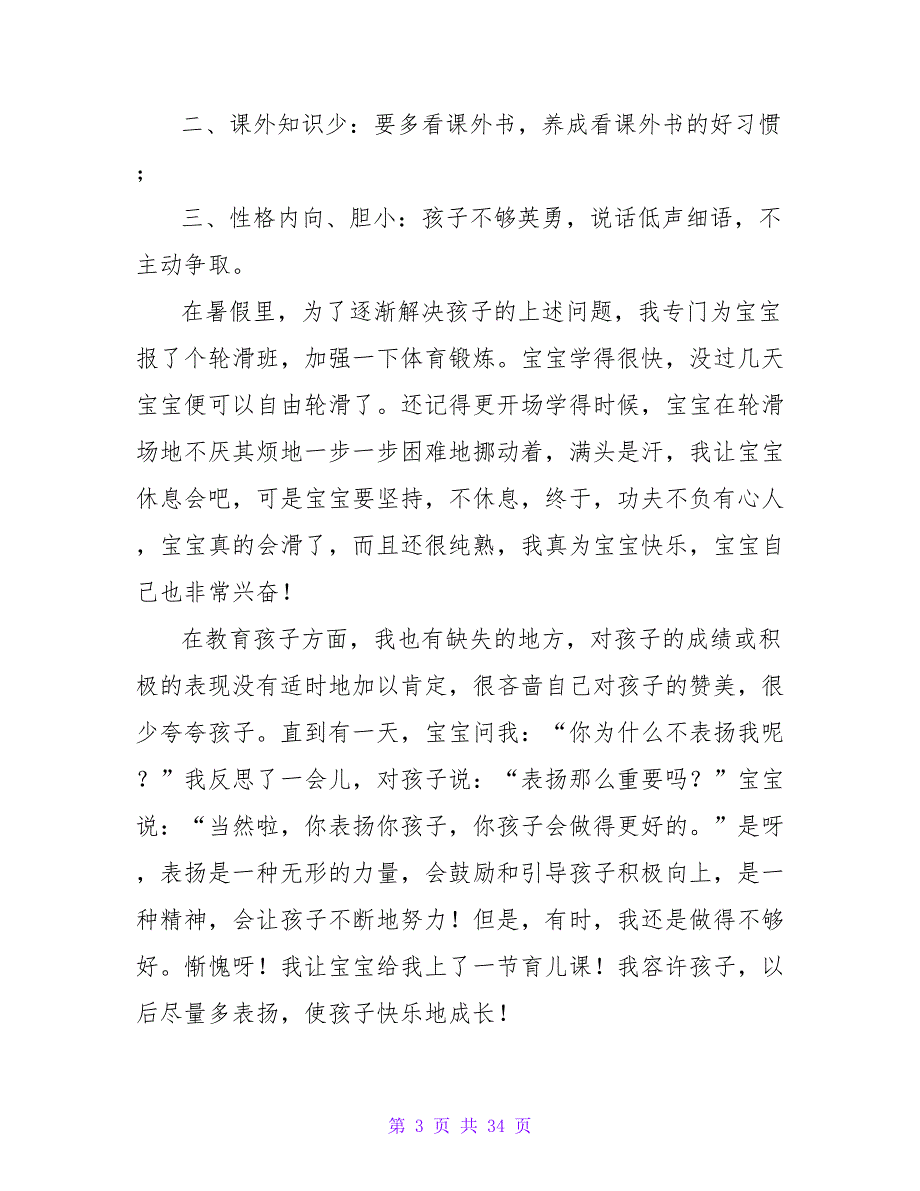 二、课外知识少：要多看课外书，养成看课外书的好习惯
；
三、性格内向、胆小：孩子不够英勇，说话低声细语，不
主动争取。
在暑假里，为了逐渐解决孩子的上述问题，我专门为宝宝
报了个轮滑班，加强一下体育锻炼。宝宝学得很快，没过几天
宝宝便可以自由轮滑了。还记得更开场学得时候，宝宝在轮滑
场地不厌其烦地一步一步困难地挪动着，满头是汗，我让宝宝
休息会吧，可是宝宝要坚持，不休息，终于，功夫不负有心人
，宝宝真的会滑了，而且还很纯熟，我真为宝宝快乐，宝宝自
己也非常兴奋！
在教育孩子方面，我也有缺失的地方，对孩子的成绩或积
极的表现没有适时地加以肯定，很吝啬自己对孩子的赞美，很
少夸夸孩子。直到有一天，宝宝问我：“你为什么不表扬我呢
？”我反思了一会儿，对孩子说：“表扬那么重要吗？”宝宝
说：“当然啦，你表扬你孩子，你孩子会做得更好的。”是呀
，表扬是一种无形的力量，会鼓励和引导孩子积极向上，是一
种精神，会让孩子不断地努力！但是，有时，我还是做得不够
好。惭愧呀！我让宝宝给我上了一节育儿课！我容许孩子，以
后尽量多表扬，使孩子快乐地成长！
第 3 页 共 34 页